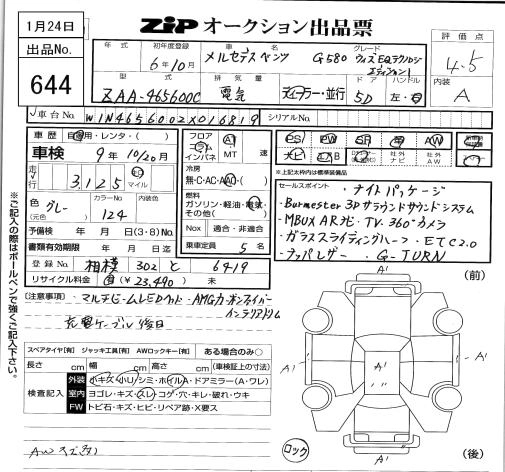 1月24日
ZiP オークション出品票
出品No.
644
年式
初年度登録
6年10月
車名
メルセデスベンツ G580
グレード
ウィズEQテクノロジー
エディション1
評価点
4.5
内装
A
型式
ZAA-465600C
排気量
電気
ディーラー・並行
ドア
5D
ハンドル
左・右
車台No.
W1N4656002X016819
シリアルNo.
車歴
自家用・レンタ・( )
フロア
コラム
インパネ
AT
MT 速
PS PW SR 革 AW
ナビ TV
社外
ナビ
社外
AW
※上記太枠内は標準装備品
車検
9年10/20月
走行
3,125
マイル
冷房
無・C・AC・AAC・( )
燃料
ガソリン・軽油・電気・
その他( )
色 グレー
(元色)
カラーNo.
124
内装色
予備検 年 月 日(3・8)No.
Nox 適合・非適合
書類有効期限 年 月 日迄
乗車定員 5名
登録No. 相模 302 と 6419
リサイクル料金 有(¥23,490)
セールスポイント
・ナイトパッケージ
・Burmester 3Dサラウンドサウンドシステム
・MBUX ARナビ・TV・360°カメラ
・ガラススライディングルーフ・ETC2.0
・ナッパレザー・G-TURN
(注意事項)・マルチビームLEDヘッド・AMGカーボンファイバー
インテリアトリム
充電ケーブル後日
※ご記入の際はボールペンで強くご記入下さい。
スペアタイヤ[有] ジャッキ工具[有] AWロックキー[有] ある場合のみ○
長さ cm 幅 cm 高さ cm (車検証上の寸法)
検査記入
外装 小キズ・小U・シミ・ホイル・A・ドアミラー(A・ワレ)
室内 ヨゴレ・キズ・スレ・コゲ・穴・キレ・破れ・ウキ
FW トビ石・キズ・ヒビ・リペア跡・X要ス
AWスミキズ
ロック
(前)
A'
A'
A'
A'
A'
(後)